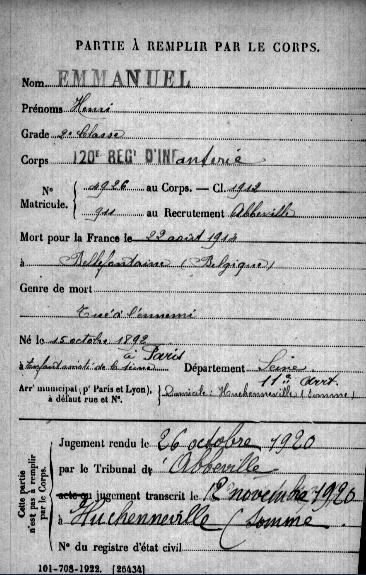 PARTIE À REMPLIR PAR LE CORPS.
Nom EMMANUEL
Prénoms Henri
Grade 2e Classe
Corps 120E REGT D'INFanterie
No Matricule. 4926 au Corps. — Cl. 1912
911 au Recrutement Abbeville
Mort pour la France le 22 août 1914
à Bellefontaine (Belgique)
Genre de mort
Tué à l'ennemi
Né le 15 octobre 1892
à Enfant assisté de la Seine à Paris Département Seine
Arrt municipal (pr Paris et Lyon), à défaut rue et No. 11e arrt. Domicile: Huchenneville (Somme)
Cette partie n'est pas à remplir par le Corps.
Jugement rendu le 26 octobre 1920
par le Tribunal de Abbeville
acte ou jugement transcrit le 12 novembre 1920
à Huchenneville (Somme)
No du registre d'état civil
101-708-1922. [26434]